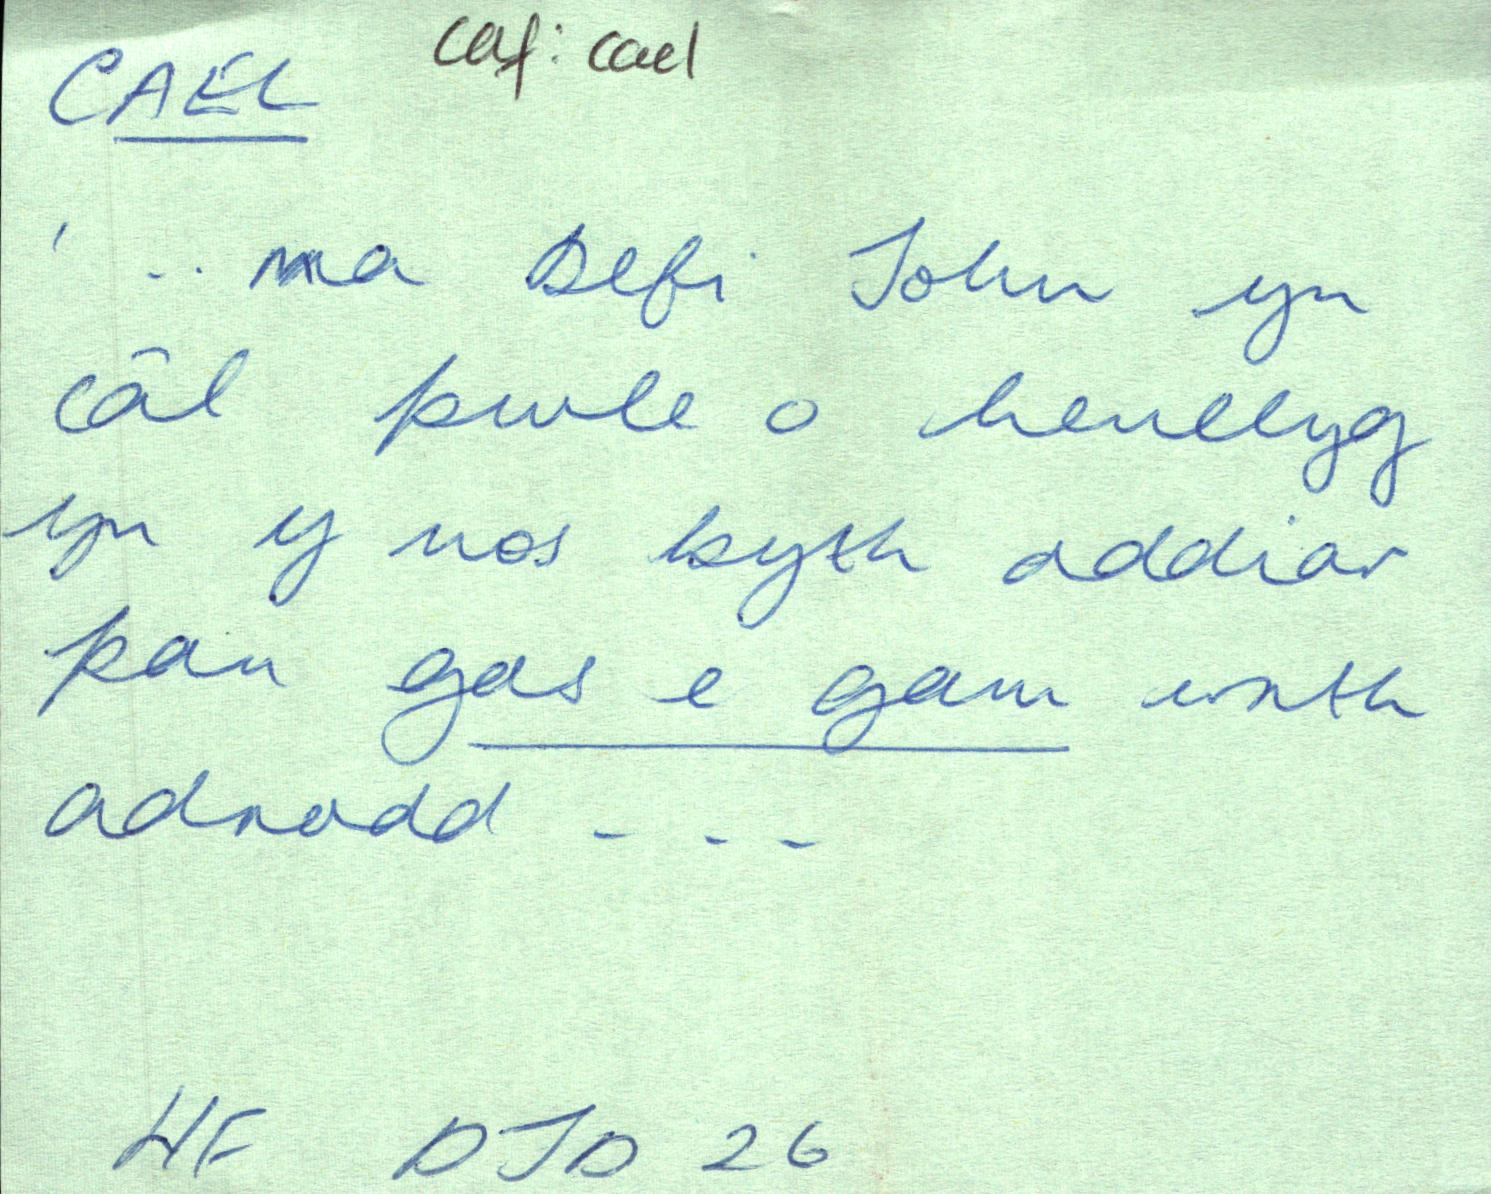 CAEL caf: cael
'.. ma Defi John yn
câl pwle o henllyg
yn y nos byth addiar
pan gas e gam wrth
adrodd ...
HF DJD 26